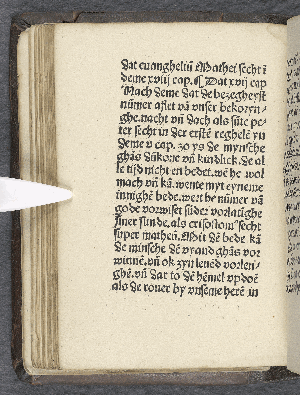 dat euangheliū Mathei secht ī
deme xviij cap. ¶ Dat xvij cap
Nach deme dat de bozegheyst
nūmer aflet vā vnser bekoryn-
ghe. nacht vn̄ dach als sūte pe-
ter secht in der erstē reghelē yn
deme v cap. zo ys de mynsche
ghās dūkone vn̄ kindlick. de al
le tijd nicht en bedet. wē he wol
mach vn̄ kā. weme myt eyneme
innighē bede. wert he nūmer vā
gode vorwiset sūder vorlatīghe
siner sunde. als crisostom⁹ secht
super matheū. Mit dē bede kā
de minsche dē vyand ghās vor
winnē. vn̄ ok zyn leuēd vorlen-
ghē. vn̄ dar to dē hēmel vpdoē
als de rouer by vnseme herē in